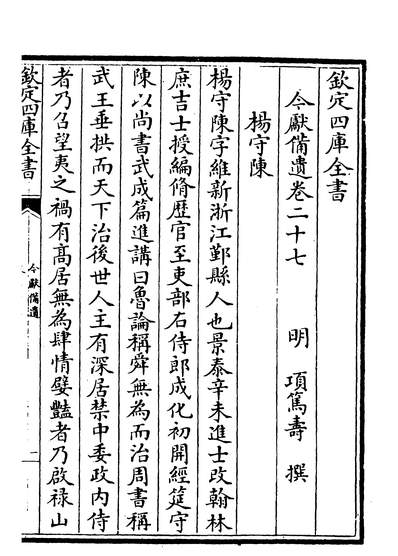 欽定四庫全書
今獻備遺卷二十七 明 項篤壽 撰
楊守陳
楊守陳字維新浙江鄞縣人也景泰辛未進士改翰林
庶吉士授編脩歴官至吏部右侍郎成化初開經筵守
陳以尚書武成篇進講曰魯論稱舜無為而治周書稱
武王垂拱而天下治後世人主有深居禁中委政内侍
者乃召望夷之禍有髙居無為肆情嬖豔者乃啟祿山
欽定四庫全書
今獻備遺